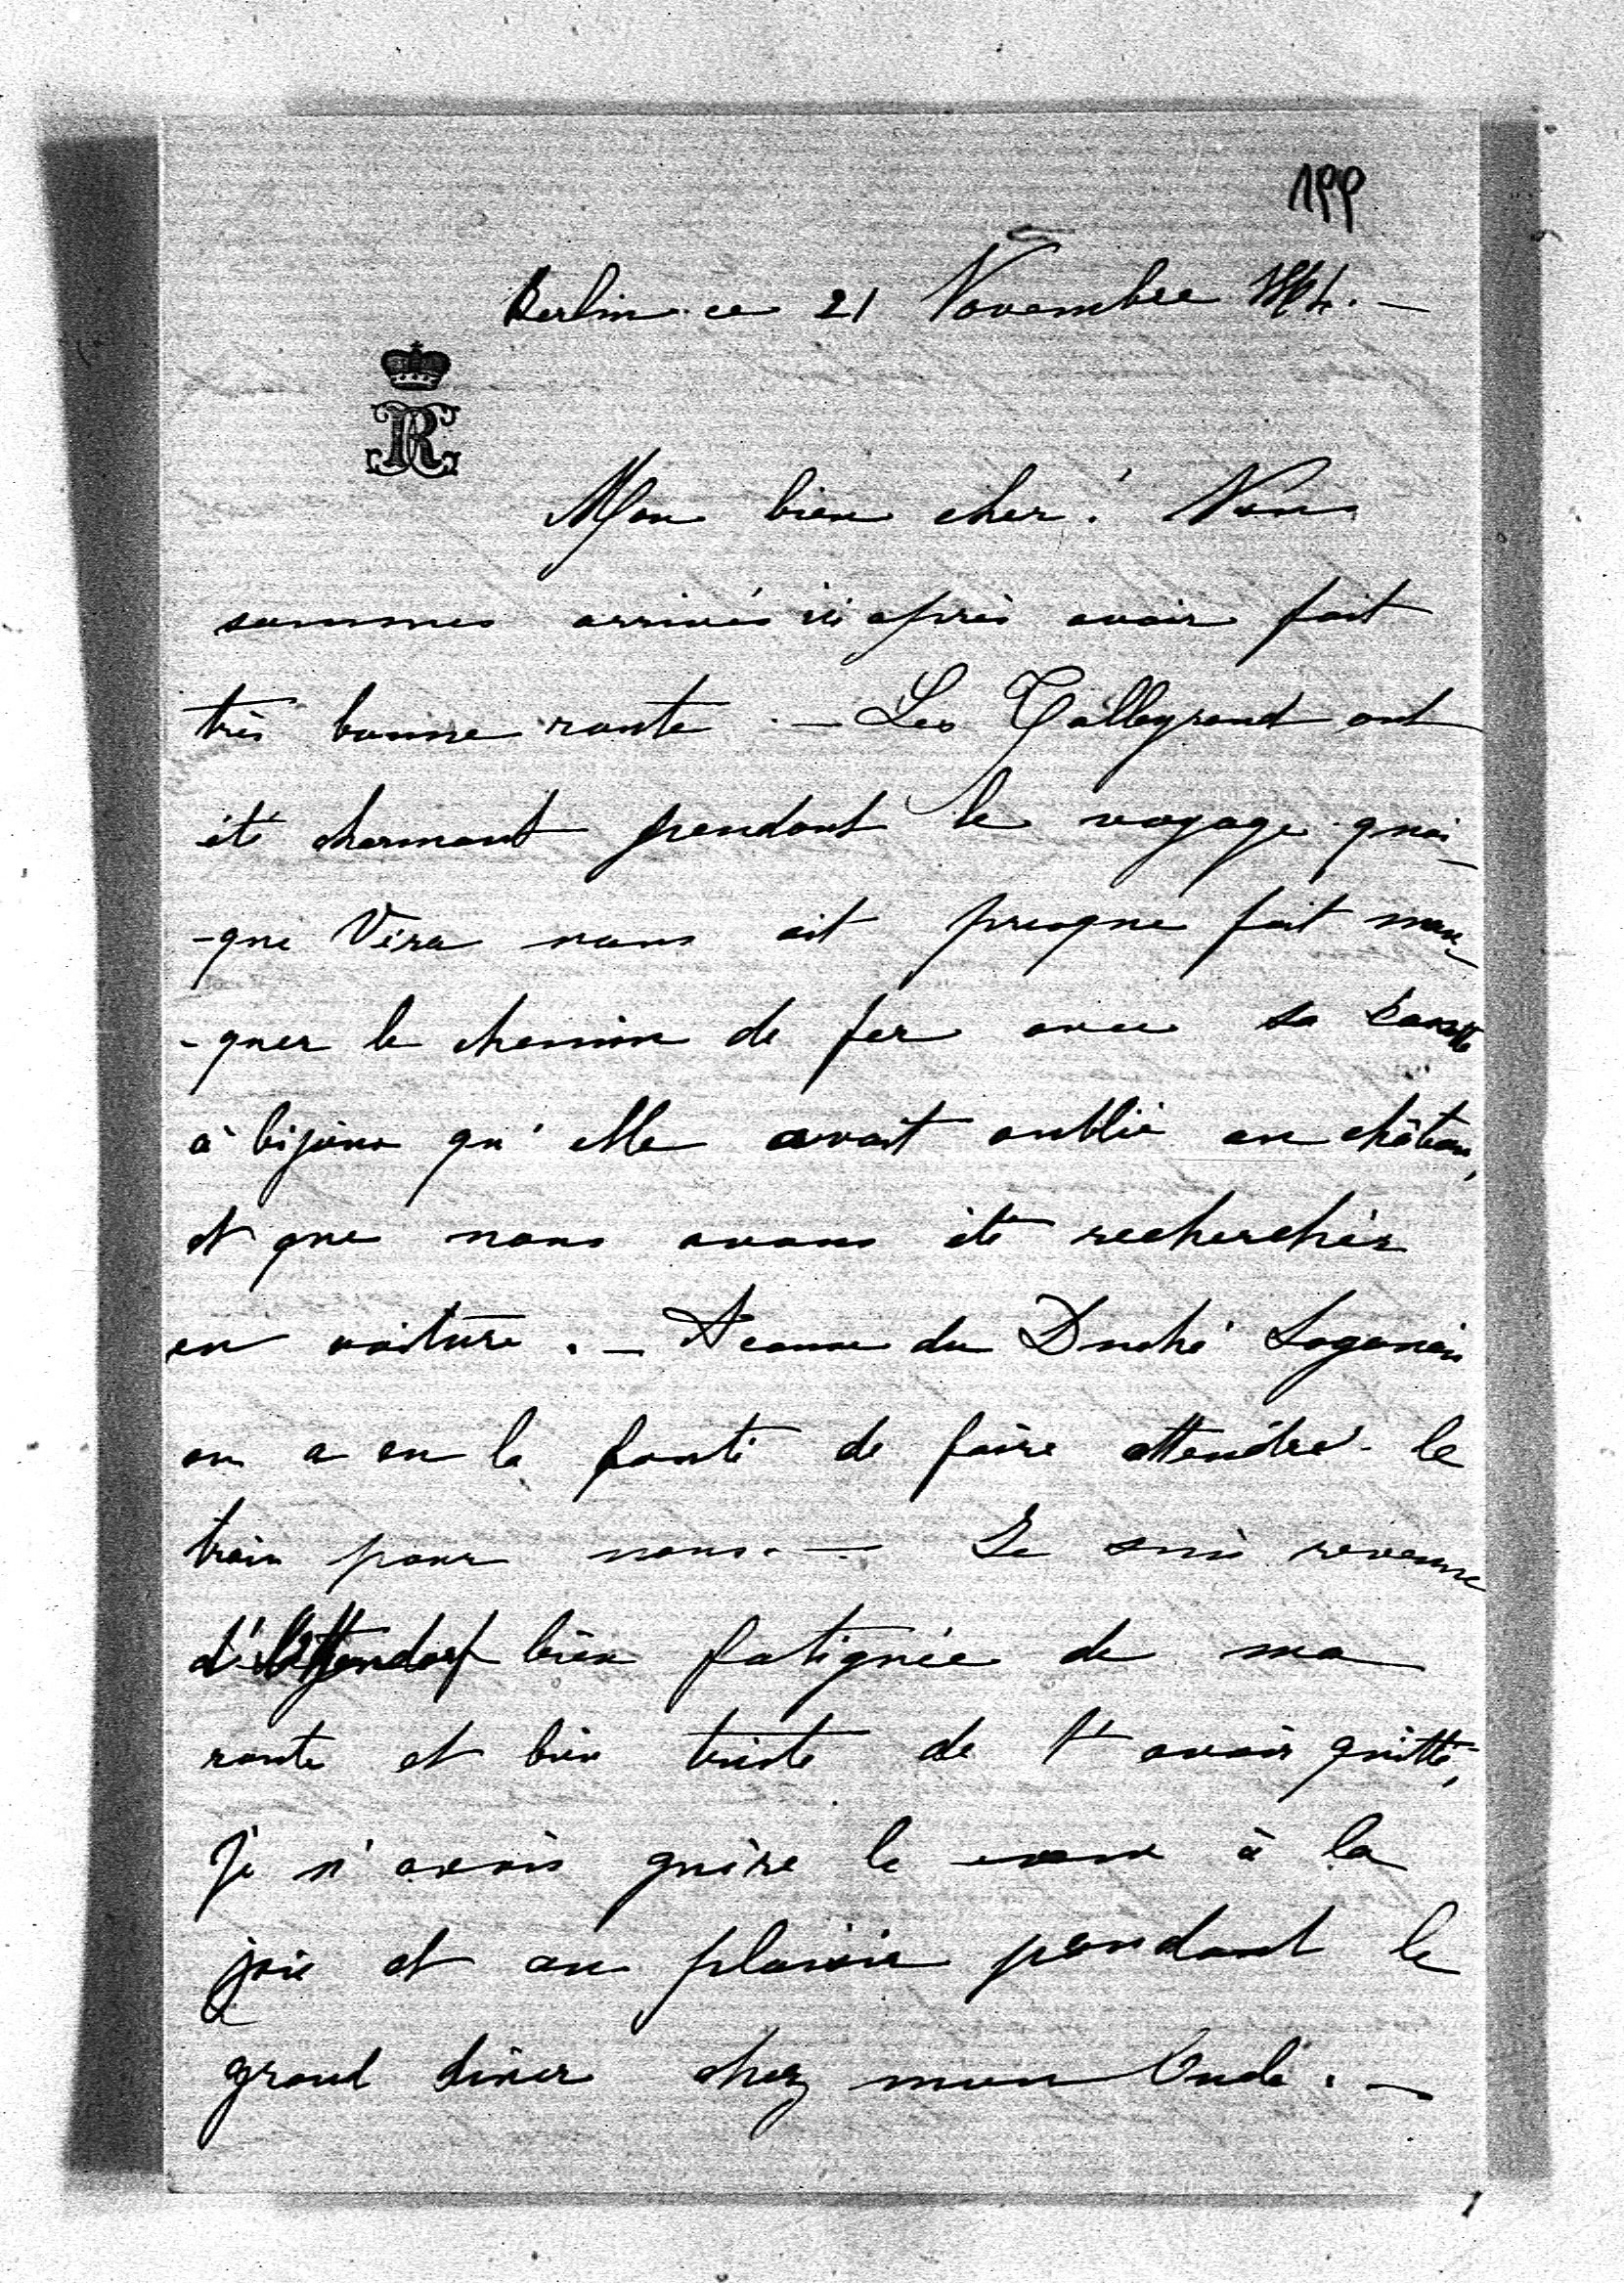 199
Berlin ce 21 Novembre
R
Mon bien cher! Nous
sommes arrivés ici après avoir fait
très bonne route. — Les Talleyrand ont
été charmant pendant le voyage quoi-
-que Véra nous ait presque fait man-
-quer le chemin de fer avec sa cassette
à bijoux qu'elle avait oublié au château,
et que nous avons été recherchés
en voiture. — A cause du Duché Saganais
on a eu la bonté de faire attendre le
train pour nous. — Je suis revenue
bien fatiguée de ma
route et bien triste de t'avoir quitté,
Je n'avais guère le cœur à la
joie et au plaisir pendant le
grand dîner chez mon Oncle. —